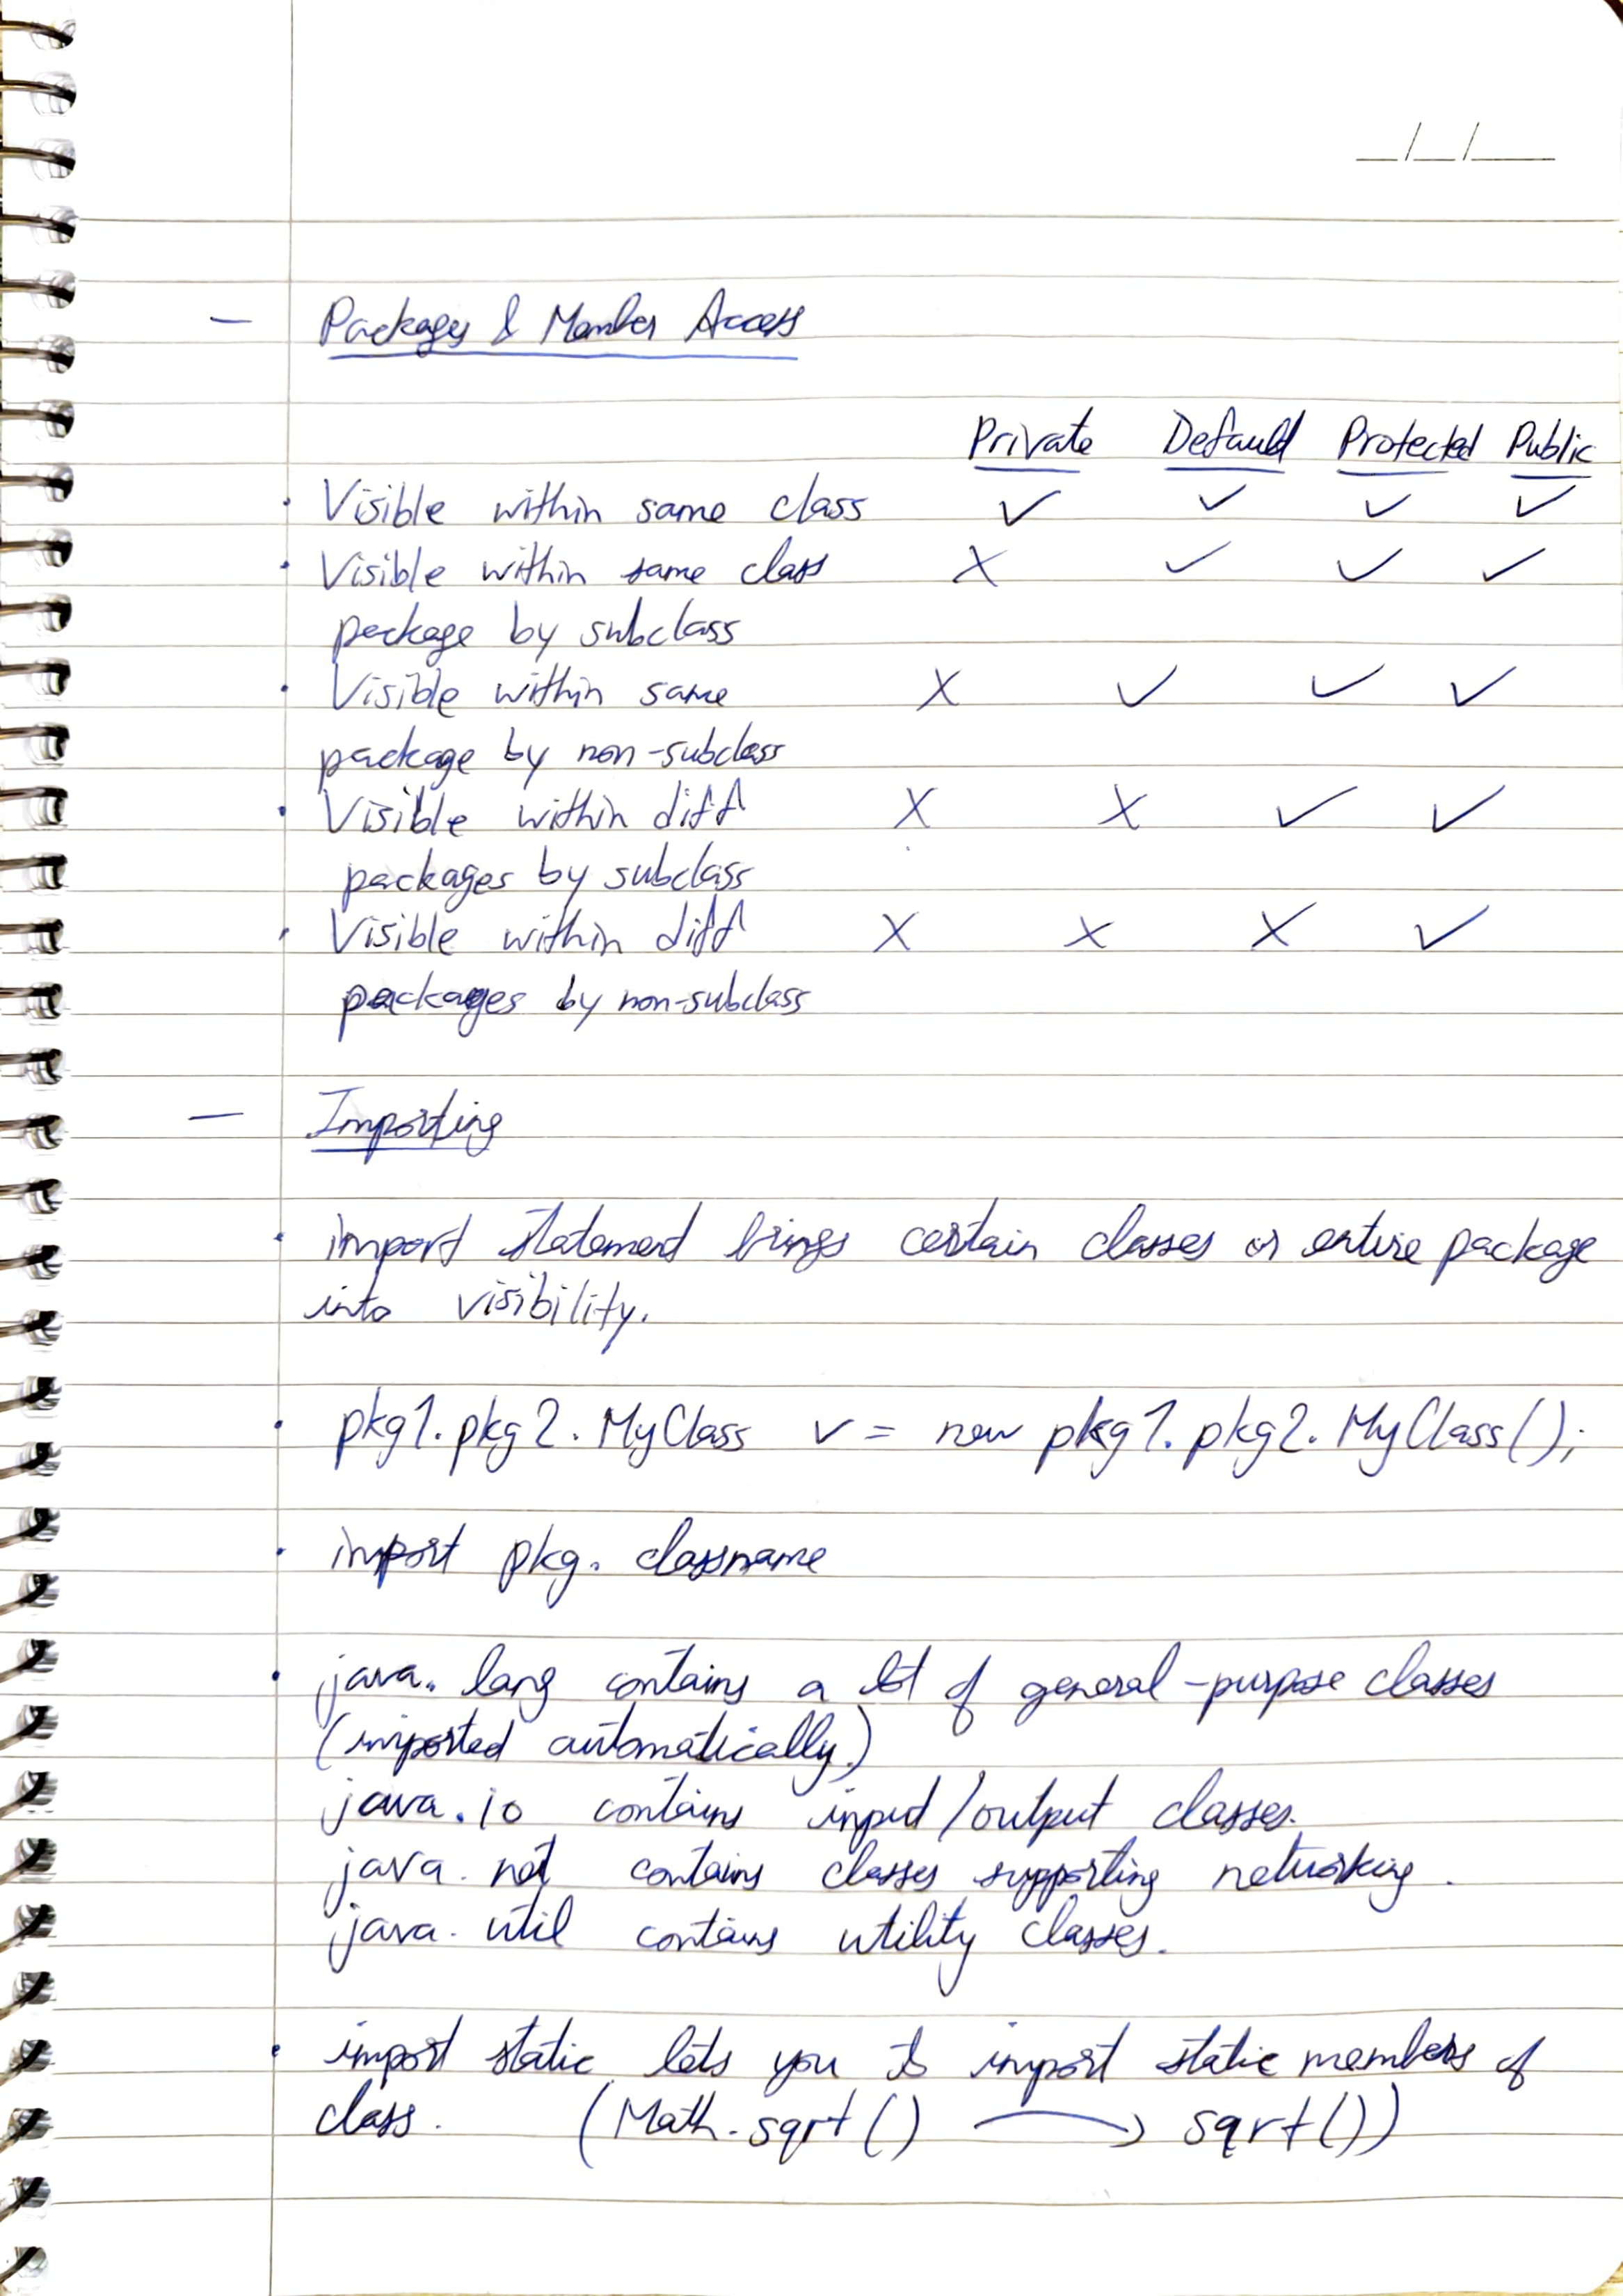 _/_/__
— Packages & Member Access
Private Default Protected Public
• Visible within same class ✓ ✓ ✓ ✓
• Visible within same class X ✓ ✓ ✓
package by subclass
• Visible within same X ✓ ✓ ✓
package by non-subclass
• Visible within diff X X ✓ ✓
packages by subclass
• Visible within diff X X X ✓
packages by non-subclass
— Importing
• import statement brings certain classes or entire package
into visibility.
• pkg1.pkg2.MyClass v = new pkg1.pkg2.MyClass();
• import pkg.classname
• java.lang contains a lot of general-purpose classes
(imported automatically)
java.io contains input/output classes.
java.net contains classes supporting networking.
java.util contains utility classes.
• import static lets you to import static members of
class. (Math.sqrt() → sqrt())